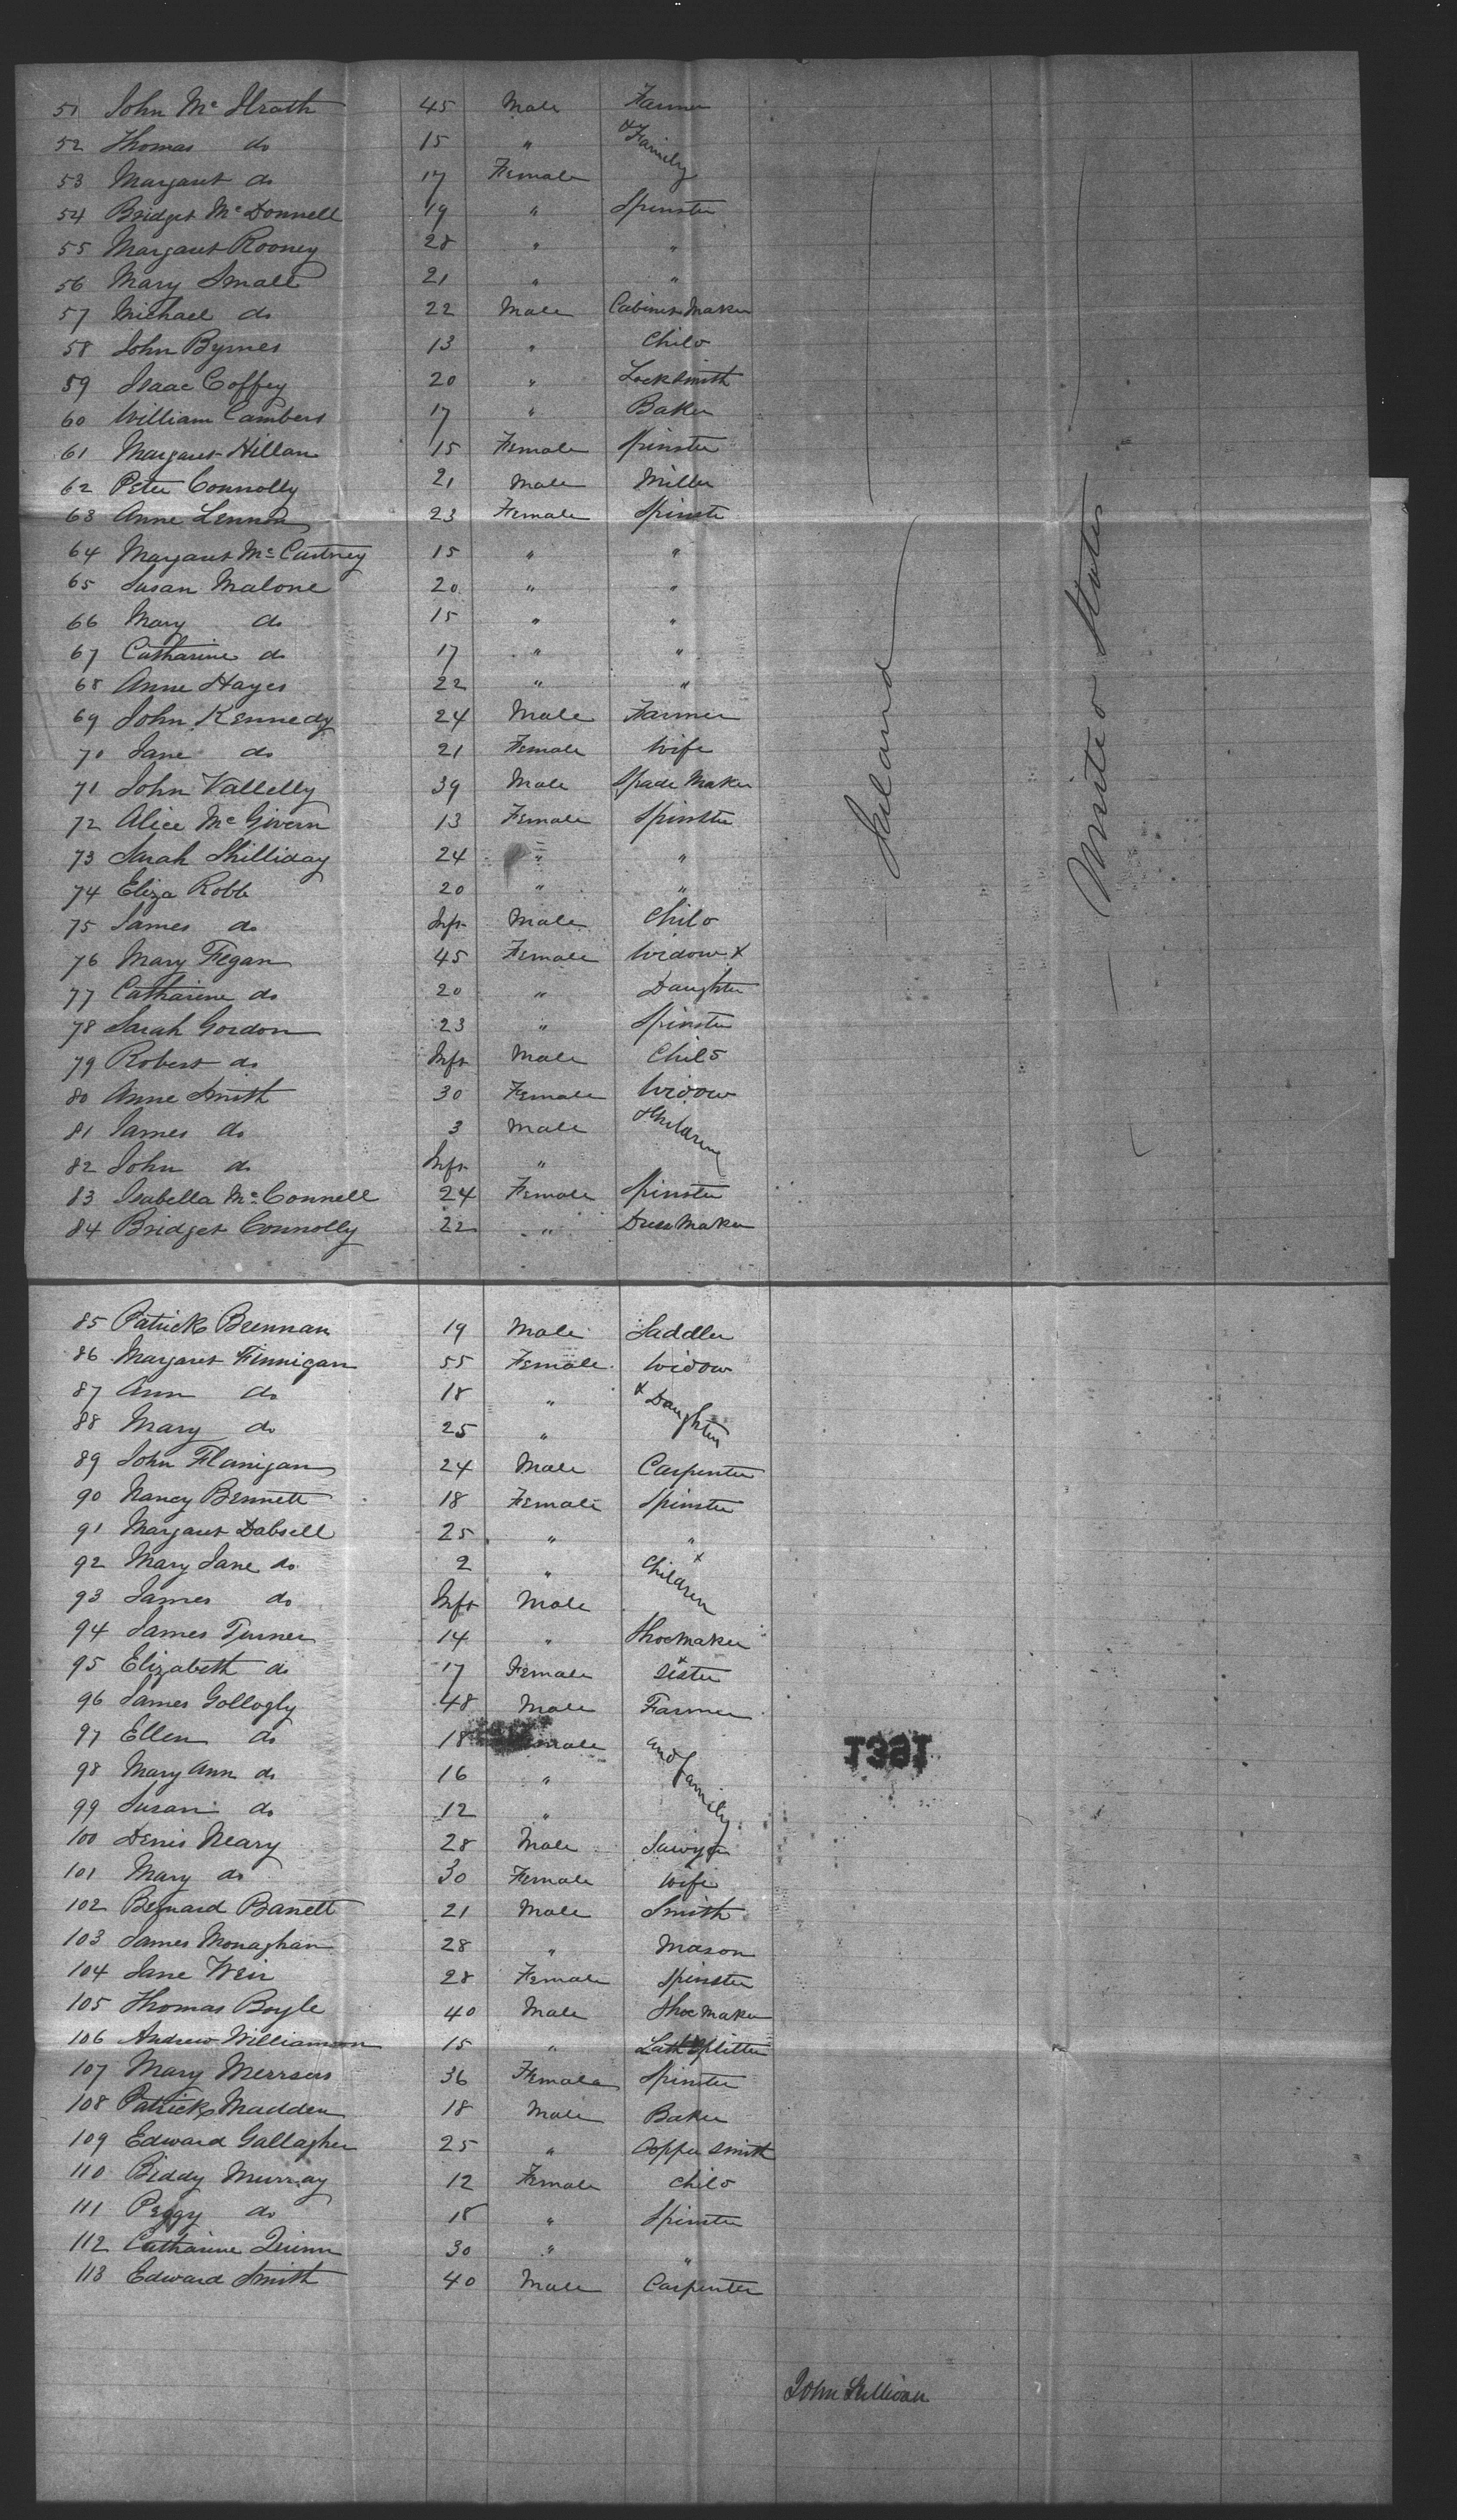 51 John Mc Ilrath 45 Male Farmer
52 Thomas do 15 " & Family
53 Margaret do 17 Female
54 Bridget Mc Donnell 19 " Spinster
55 Margaret Rooney 28 " "
56 Mary Small 21 " "
57 Michael do 22 Male Cabinet Maker
58 John Byrnes 13 " Child
59 Isaac Coffey 20 " Locksmith
60 William Cambers 17 " Baker
61 Margaret Hillan 15 Female Spinster
62 Peter Connolly 21 Male Miller
63 Anne Lennon 23 Female Spinster
64 Margaret Mc Cartney 15 " "
65 Susan Malone 20 " "
66 Mary do 15 " "
67 Catharine do 17 " "
68 Anne Hayes 22 " "
69 John Kennedy 24 Male Farmer
70 Jane do 21 Female Wife
71 John Vallelly 39 Male Spade Maker
72 Alice Mc Givern 13 Female Spinster
73 Sarah Shilliday 24 " "
74 Eliza Robb 20 " "
75 James do Inft Male Child
76 Mary Fegan 45 Female Widow &
77 Catharine do 20 " Daughter
78 Sarah Gordon 23 " Spinster
79 Robert do Inft Male Child
80 Anne Smith 30 Female Widow
81 James do 3 Male & Children
82 John do Inft "
83 Isabella Mc Connell 24 Female Spinster
84 Bridget Connolly 22 " Dress Maker
Ireland
United States
85 Patrick Brennan 19 Male Saddler
86 Margaret Finnigan 55 Female Widow
87 Ann do 18 " & Daughters
88 Mary do 25 "
89 John Flanigan 24 Male Carpenter
90 Nancy Bennett 18 Female Spinster
91 Margaret Dabsell 25 " "
92 Mary Jane do 2 " & Children
93 James do Inft Male
94 James Turner 14 " Shoemaker
95 Elizabeth do 17 Female & Sister
96 James Gollogly 48 Male Farmer
97 Ellen do 18 Female and family
98 Mary Ann do 16 "
99 Susan do 12 "
100 Denis Neary 28 Male Sawyer
101 Mary do 30 Female Wife
102 Bernard Barrett 21 Male Smith
103 James Monaghan 28 " Mason
104 Jane Weir 28 Female Spinster
105 Thomas Boyle 40 Male Shoe Maker
106 Andrew Williamson 15 " Lath Splitter
107 Mary 36 Female Spinster
108 Patrick Madden 18 Male Baker
109 Edward Gallagher 25 " Copper Smith
110 Biddy Murray 12 Female Child
111 Peggy do 18 " Spinster
112 Catharine Quinn 30 " "
113 Edward Smith 40 Male Carpenter
1381
John Sullivan